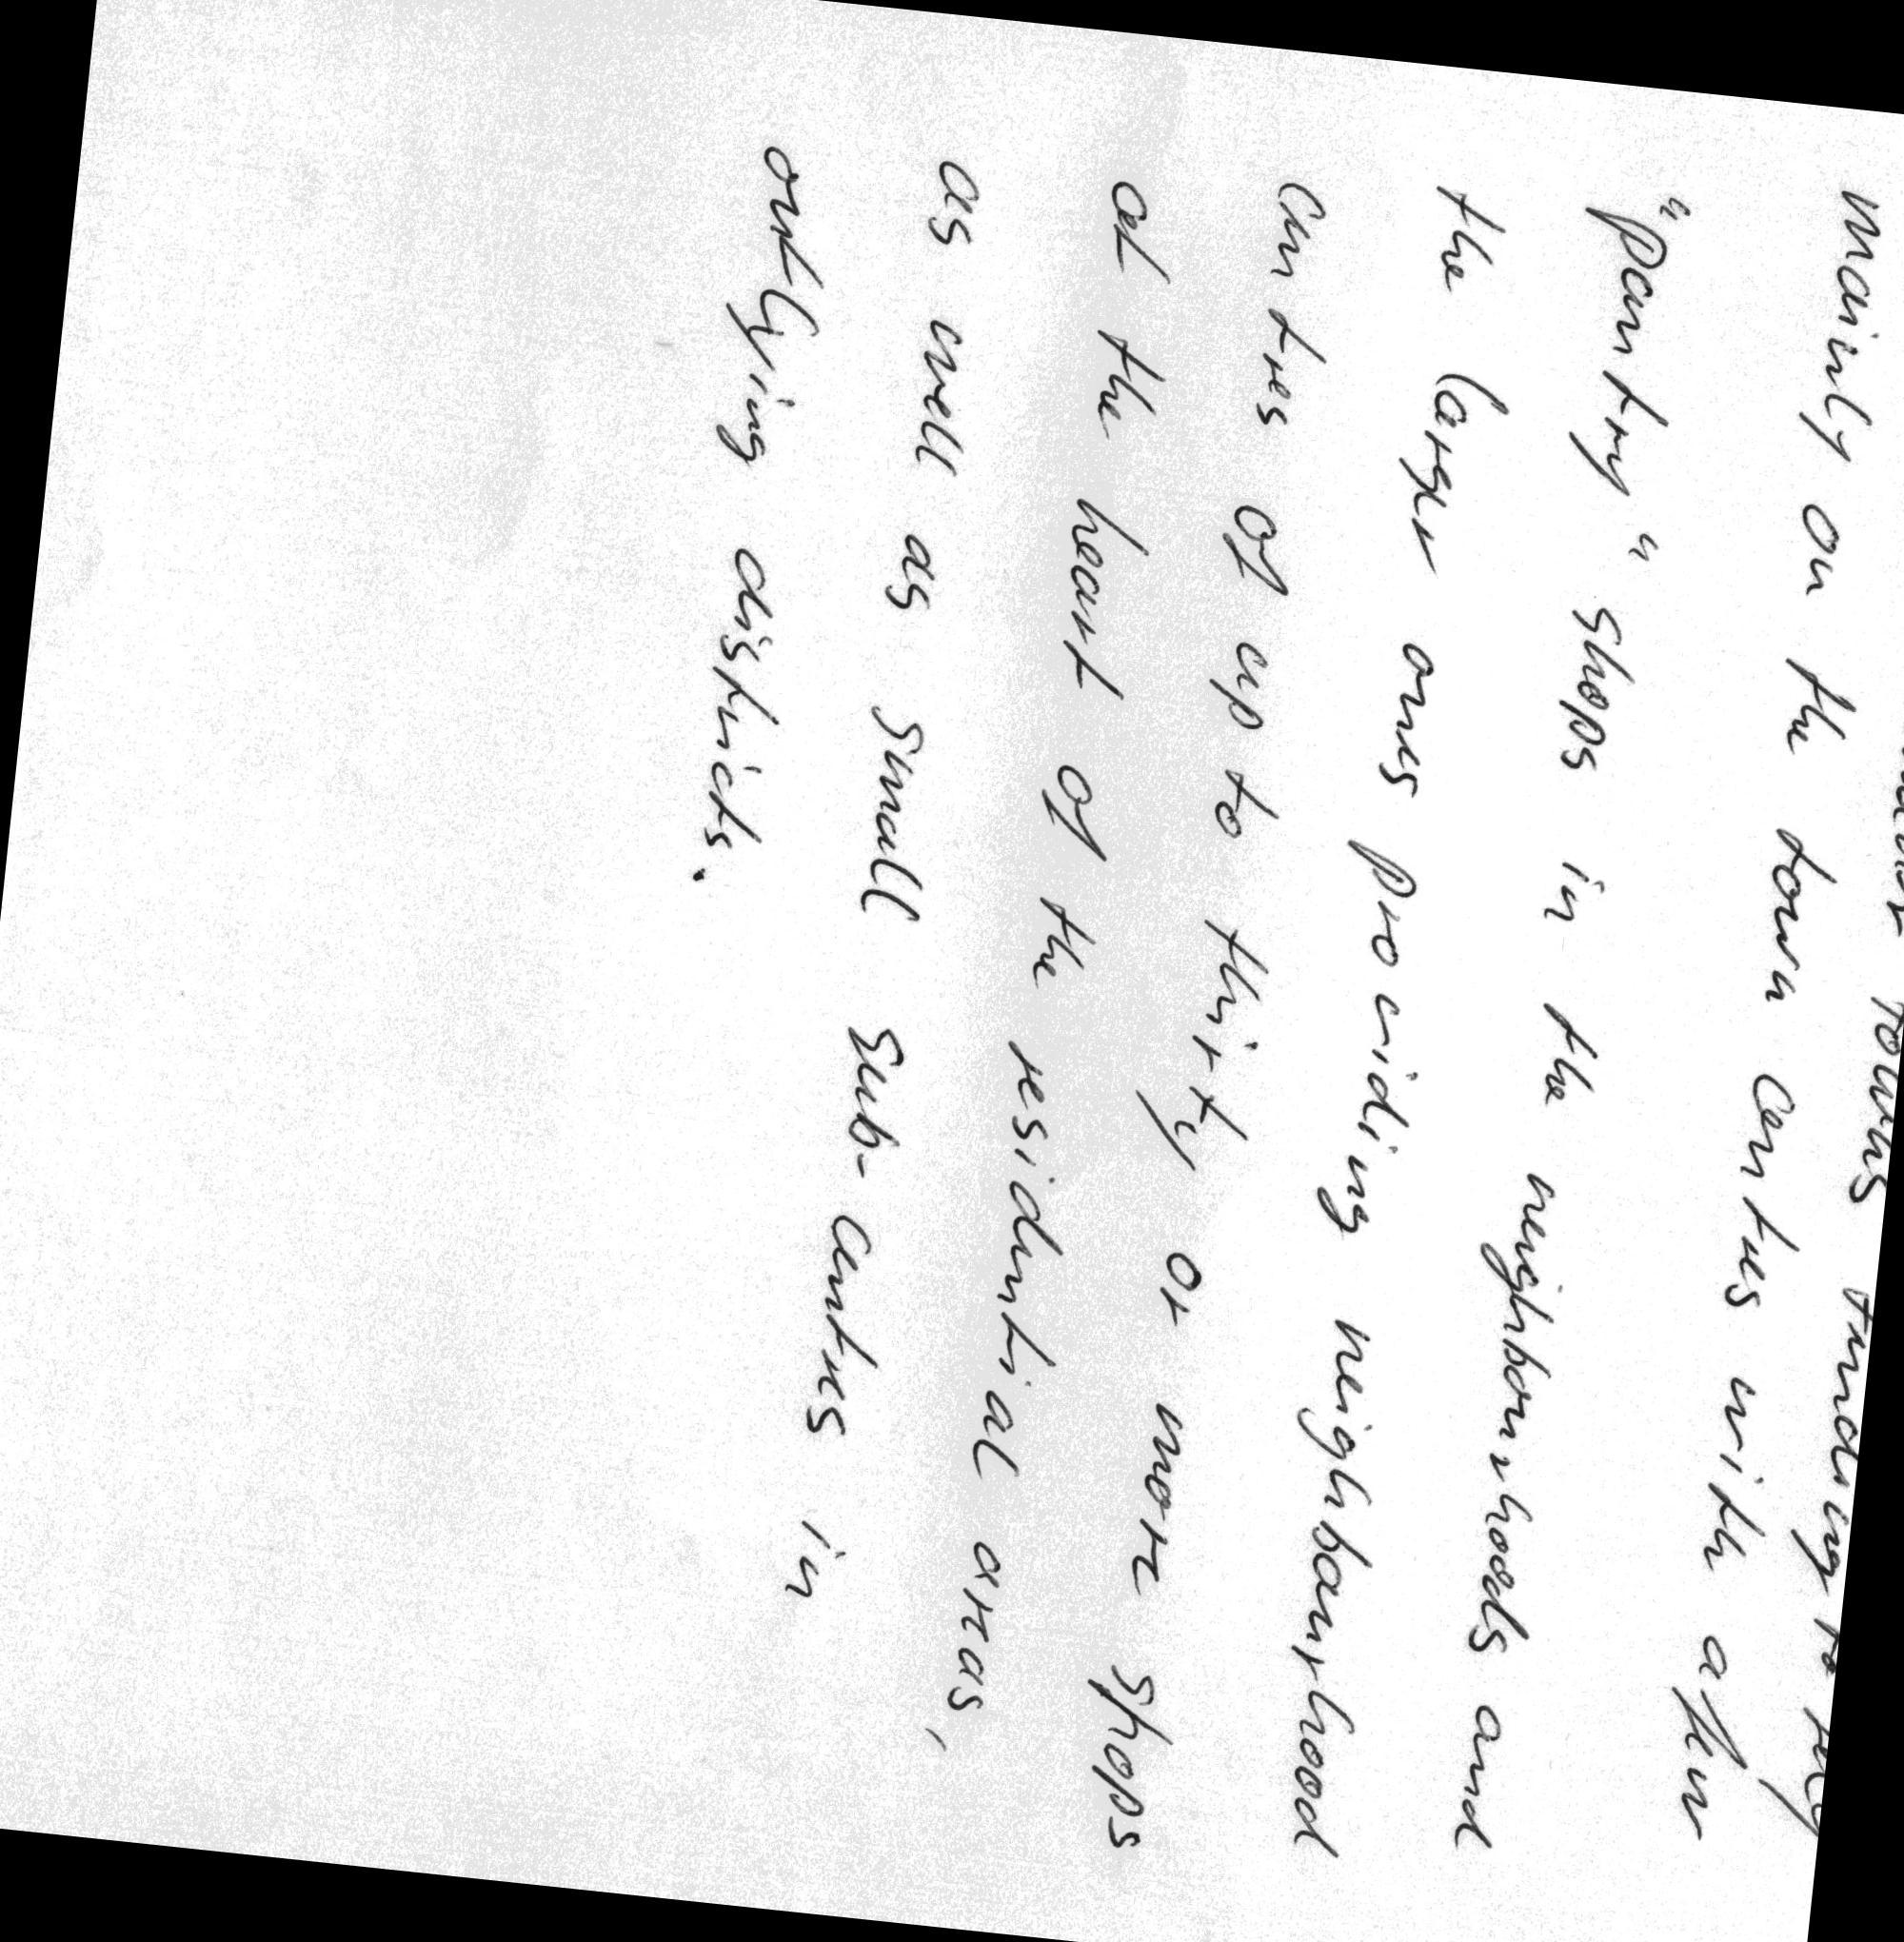 towns tending to rely
mainly on the town centres with a few
"pantry" shops in the neighbourhoods and
the larger ones providing neighbourhood
centres of up to thirty or more shops
at the heart of the residential areas,
as well as small sub-centres in
outlying districts.